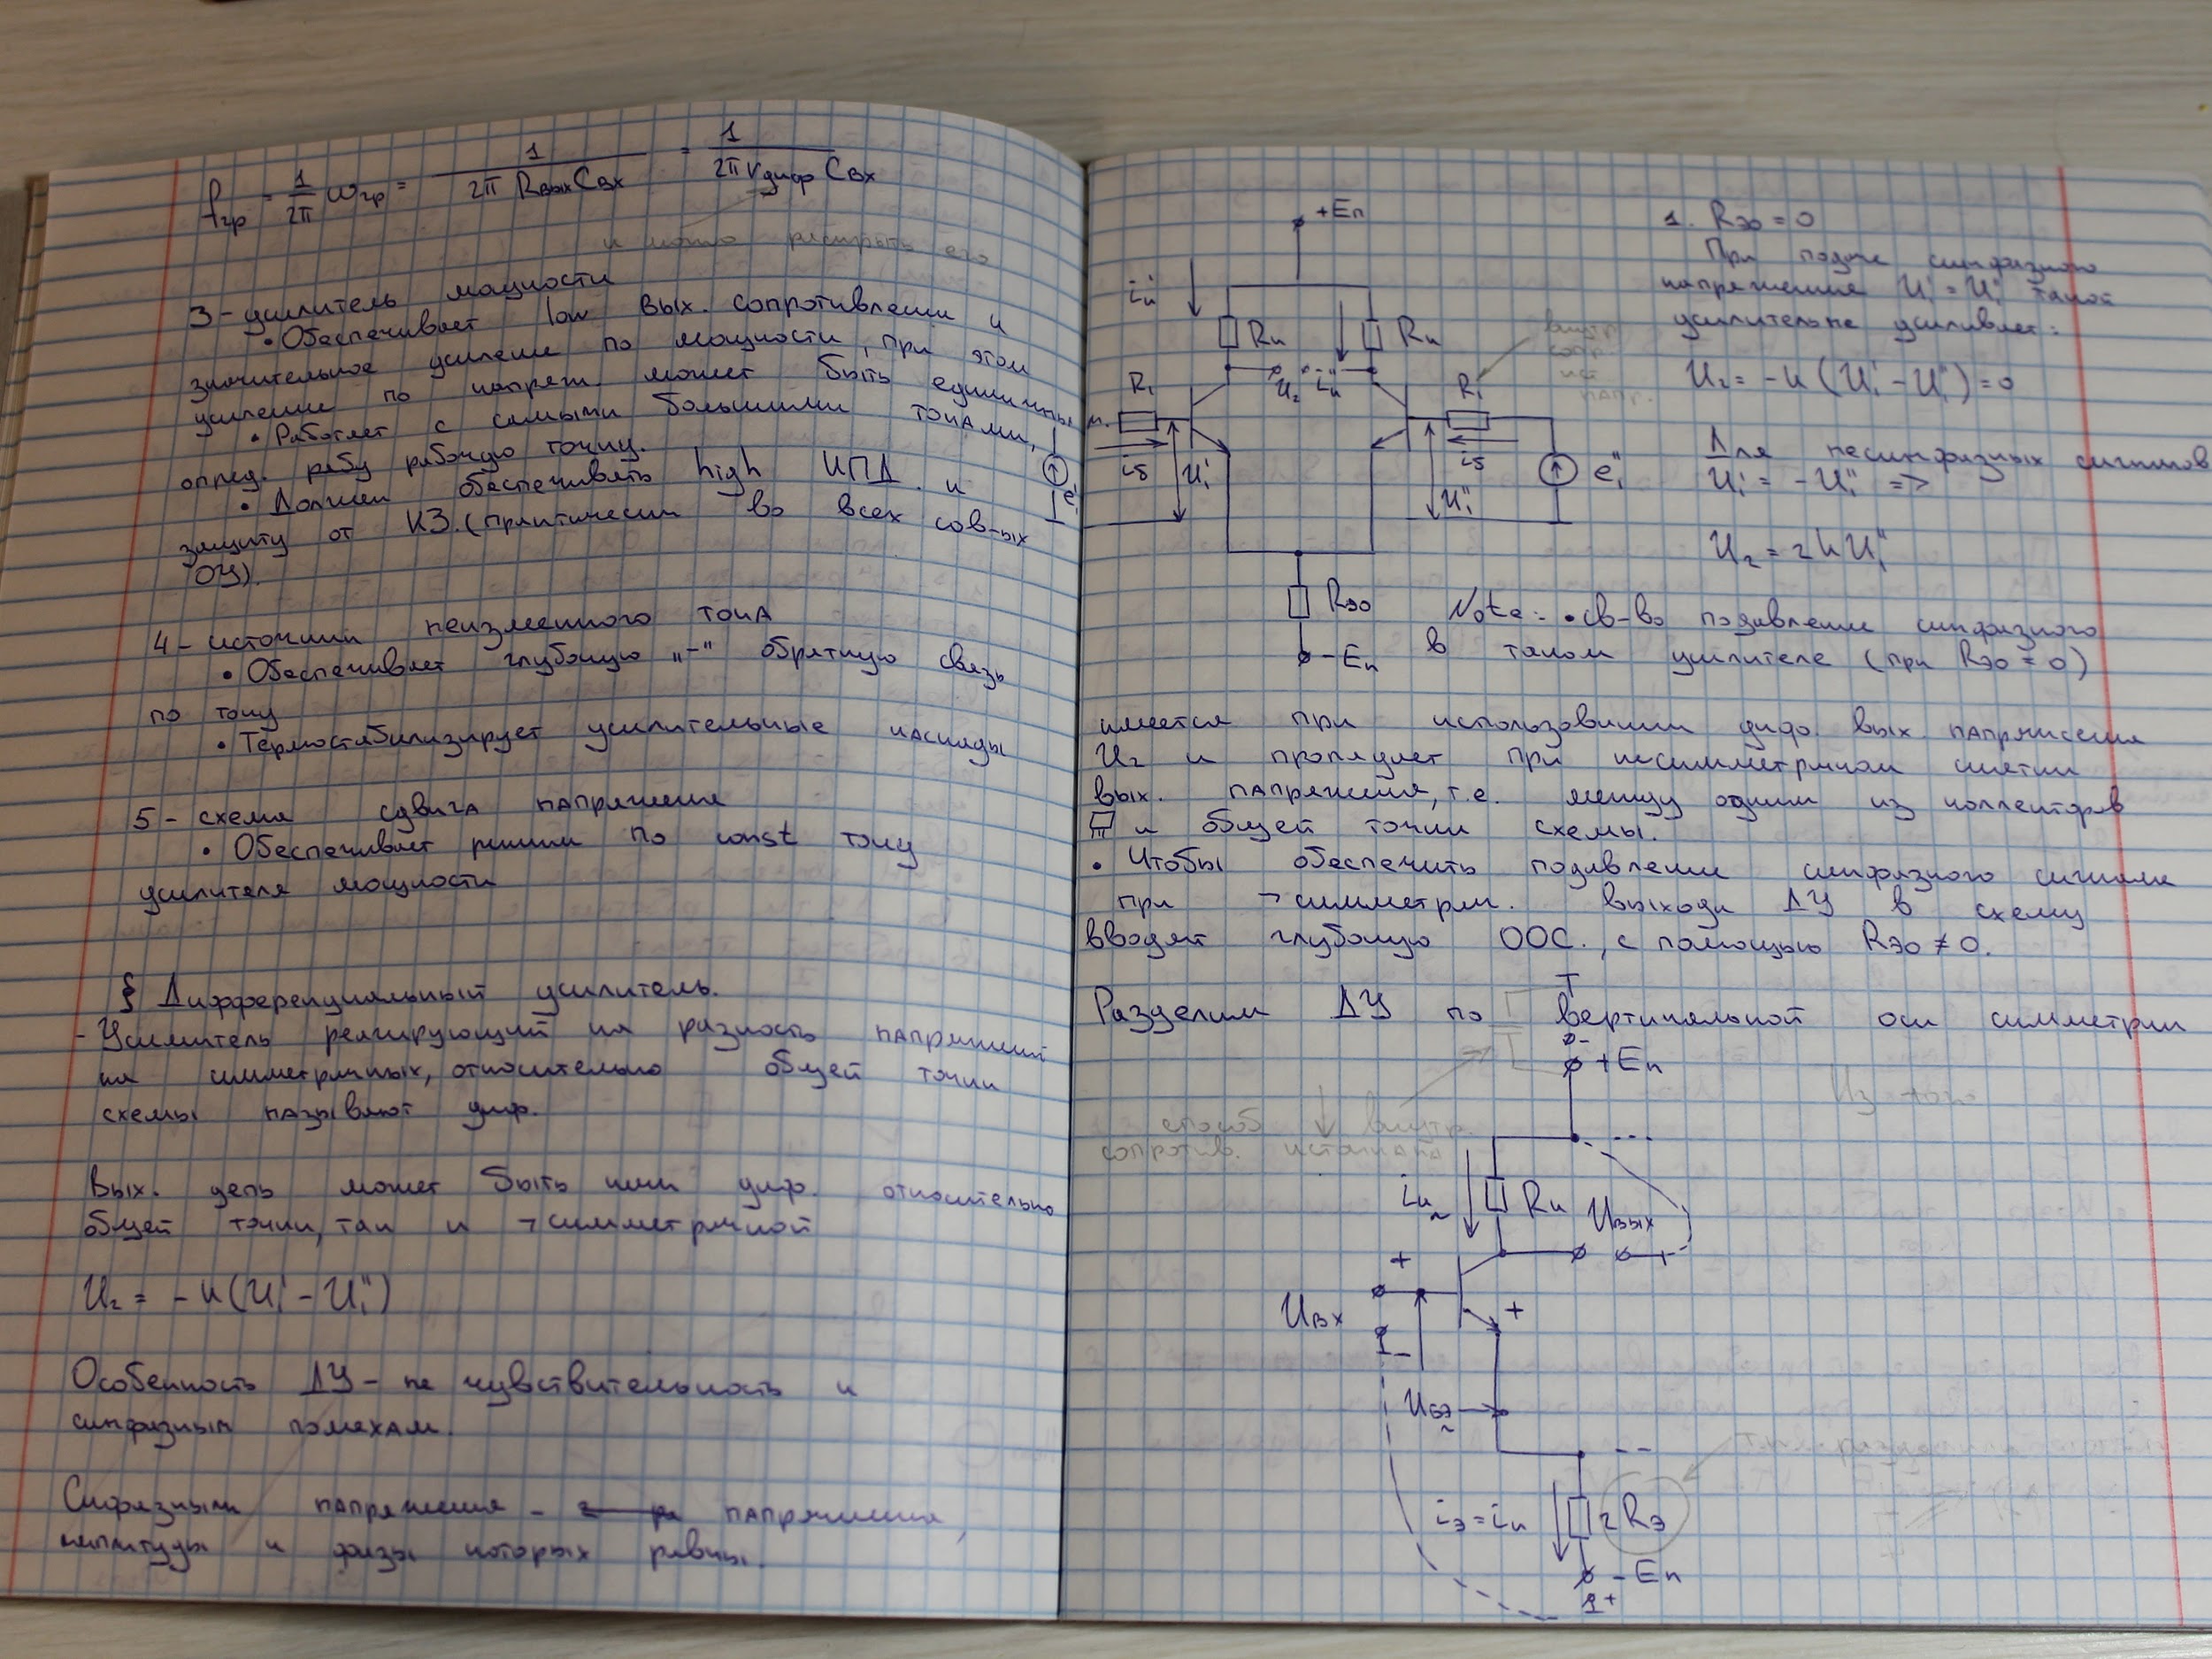 fгр = 1/2π ωгр = 1/2π Rвых Cвх = 1/2π rдиф Cвх
3 - усилитель мощности
• Обеспечивает low вых. сопротивление и
значительное усиление по мощности, при этом
усиление по напряж. может быть единичным
• Работает с самыми большими токами,
опред. рабочую точку.
• Должен обеспечивать high КПД и
защиту от КЗ. (практически во всех сов-ых
ОУ).
4 - источник неизменного тока
• Обеспечивает глубокую „-" обратную связь
по току
• Термостабилизирует усилительные каскады
5 - схема сдвига напряжения
• Обеспечивает режим по const току
усилителя мощности
§ Дифференциальный усилитель.
- Усилитель реагирующий на разность напряжений
на симметричных, относительно общей точки
схемы называют диф.
Вых. цепь может быть как диф. относительно
общей точки, так и ¬симметричной
U₂ = -к(U₁' - U₁'')
Особенность ДУ - не чувствительность к
синфазным помехам.
Синфазными напряжения - напряжения,
амплитуды и фазы которых равны.
+Eп
iк'
Rк
Rк
внутр.
сопр.
ист.
напр.
R₁
U₂
iк''
R₁
iб
U₁'
iб
U₁''
e₁'
e₁''
Rэо
-Eп
1. Rэо = 0
При подаче синфазного
напряжения U₁' = U₁'' такой
усилитель не усиливает:
U₂ = -к(U₁' - U₁'') = 0
Для несинфазных сигналов
U₁' = -U₁'' =>
U₂ = 2кU₁''
Note: • св-во подавление синфазного
в таком усилителе (при Rэо = 0)
имеется при использовании диф. вых. напряжения
U₂ и пропадает при несимметричном снятии
вых. напряжения, т.е. между одним из коллекторов
и общей точки схемы.
• Чтобы обеспечить подавление синфазного сигнала
при ¬симметрич. выходи ДУ в схему
вводят глубокую ООС., с помощью Rэо ≠ 0.
Разделим ДУ по вертикальной оси симметрии
+Eп
Из того
способ ↓ внутр.
сопротив. источника
iк~
Rк
Uвых
+
Uвх
+
-
Uбэ~
iэ = iк
2Rэ
-Eп
+